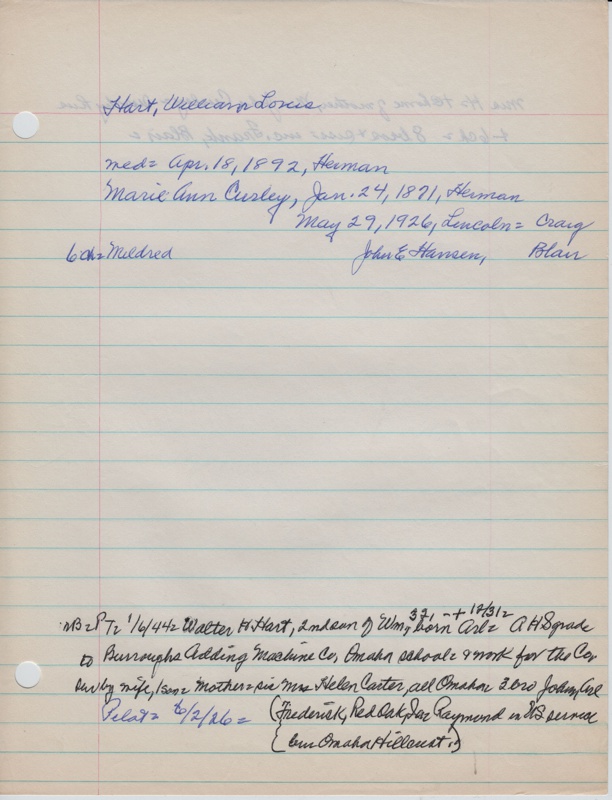 Hart, William Louis
med= Apr. 18, 1892, Herman
Marie Ann Cursley, Jan. 24, 1871, Herman
May 29, 1926, Lincoln= Craig
6 ch= Mildred John E Hansen, Blair
1/6/44= Walter H. Hart, 2nd son of Wm, 37, born Arl= + 12/31= A H S grade
to Burroughs Adding Machine Co, Omaha school= & work for the Co=
sur by wife, 1 son= Mother= sis Mrs Helen Carter, all Omaha= 3 bro John, Arl
Pilot= 6/2/26= (Frederick, Red Oak, Ia= Raymond in US service
(bur Omaha Hillcrest.)